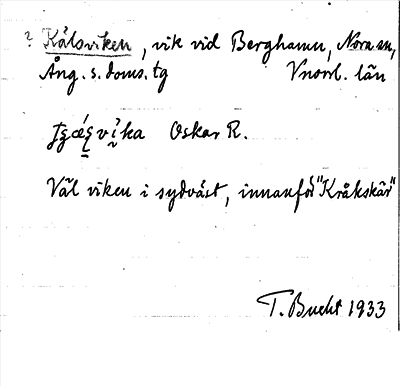 ? Kälsviken, vik vid Berghamn, Nora sn,
Ång. s. doms. tg Vnorrl. län
Oskar R.
Väl viken i sydväst, innanför "Kråkskär"
T. Bucht 1933